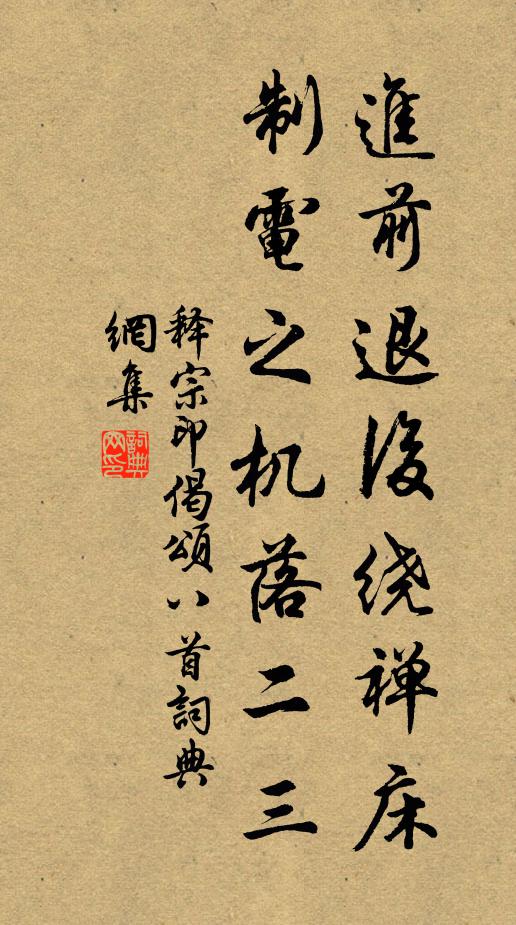 進前退後绕禅床
制電之机落二三
释宗印偈頌八首詞典
網集
詞典网印